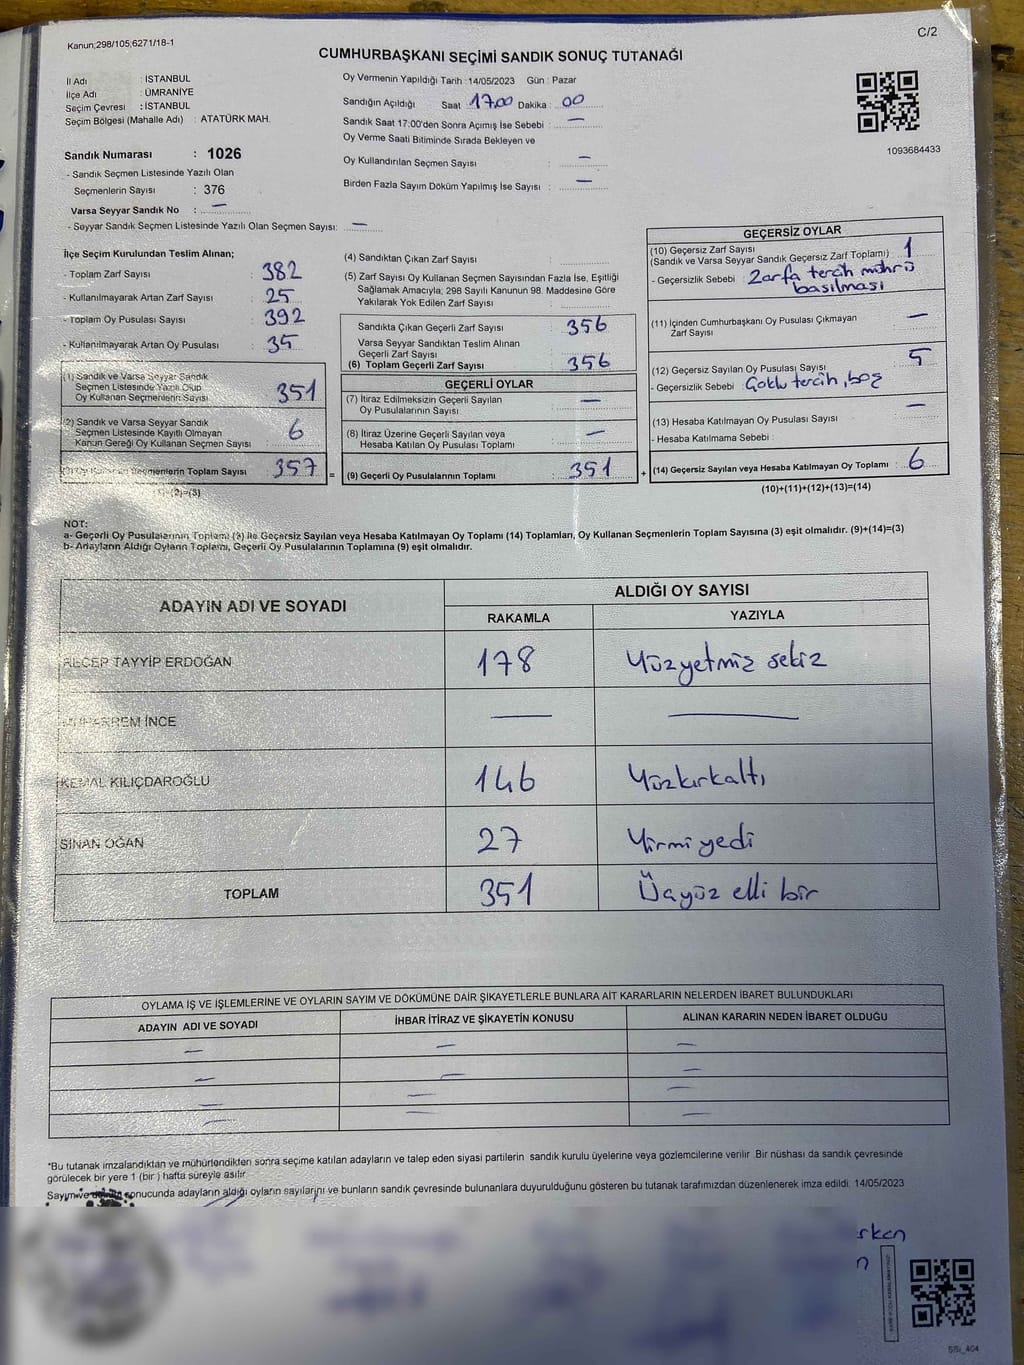 Kanun;298/105;6271/18-1
C/2
CUMHURBAŞKANI SEÇİMİ SANDIK SONUÇ TUTANAĞI
İl Adı : İSTANBUL
İlçe Adı : ÜMRANİYE
Seçim Çevresi : İSTANBUL
Seçim Bölgesi (Mahalle Adı) : ATATÜRK MAH.
Sandık Numarası : 1026
- Sandık Seçmen Listesinde Yazılı Olan
Seçmenlerin Sayısı : 376
Varsa Seyyar Sandık No : —
- Seyyar Sandık Seçmen Listesinde Yazılı Olan Seçmen Sayısı: —
Oy Vermenin Yapıldığı Tarih : 14/05/2023 Gün : Pazar
Sandığın Açıldığı Saat 17.00 Dakika : 00
Sandık Saat 17:00'den Sonra Açımış İse Sebebi : —
Oy Verme Saati Bitiminde Sırada Bekleyen ve
Oy Kullandırılan Seçmen Sayısı : —
Birden Fazla Sayım Döküm Yapılmış İse Sayısı : —
1093684433
İlçe Seçim Kurulundan Teslim Alınan;
- Toplam Zarf Sayısı : 382
- Kullanılmayarak Artan Zarf Sayısı : 25
- Toplam Oy Pusulası Sayısı : 392
- Kullanılmayarak Artan Oy Pusulası : 35
(1) Sandık ve Varsa Seyyar Sandık
Seçmen Listesinde Yazılı Olup
Oy Kullanan Seçmenlerin Sayısı : 351
(2) Sandık ve Varsa Seyyar Sandık
Seçmen Listesinde Kayıtlı Olmayan
Kanun Gereği Oy Kullanan Seçmen Sayısı : 6
(3) Oy Kullanan Seçmenlerin Toplam Sayısı : 357 =
(1)+(2)=(3)
(4) Sandıktan Çıkan Zarf Sayısı :
(5) Zarf Sayısı Oy Kullanan Seçmen Sayısından Fazla İse, Eşitliği
Sağlamak Amacıyla; 298 Sayılı Kanunun 98. Maddesine Göre
Yakılarak Yok Edilen Zarf Sayısı :
Sandıkta Çıkan Geçerli Zarf Sayısı : 356
Varsa Seyyar Sandıktan Teslim Alınan
Geçerli Zarf Sayısı
(6) Toplam Geçerli Zarf Sayısı : 356
GEÇERLİ OYLAR
(7) İtiraz Edilmeksizin Geçerli Sayılan
Oy Pusulalarının Sayısı : —
(8) İtiraz Üzerine Geçerli Sayılan veya
Hesaba Katılan Oy Pusulası Toplamı : —
(9) Geçerli Oy Pusulalarının Toplamı : 351 +
GEÇERSİZ OYLAR
(10) Geçersiz Zarf Sayısı
(Sandık ve Varsa Seyyar Sandık Geçersiz Zarf Toplamı) : 1
- Geçersizlik Sebebi : Zarfa tercih mührü
basılması
(11) İçinden Cumhurbaşkanı Oy Pusulası Çıkmayan
Zarf Sayısı : —
(12) Geçersiz Sayılan Oy Pusulası Sayısı : 5
- Geçersizlik Sebebi : Çoklu tercih, boş
(13) Hesaba Katılmayan Oy Pusulası Sayısı : —
- Hesaba Katılmama Sebebi :
(14) Geçersiz Sayılan veya Hesaba Katılmayan Oy Toplamı : 6
(10)+(11)+(12)+(13)=(14)
NOT:
a- Geçerli Oy Pusulalarının Toplamı (9) ile Geçersiz Sayılan veya Hesaba Katılmayan Oy Toplamı (14) Toplamları, Oy Kullanan Seçmenlerin Toplam Sayısına (3) eşit olmalıdır. (9)+(14)=(3)
b- Adayların Aldığı Oyların Toplamı, Geçerli Oy Pusulalarının Toplamına (9) eşit olmalıdır.
ADAYIN ADI VE SOYADI ALDIĞI OY SAYISI
RAKAMLA YAZIYLA
RECEP TAYYİP ERDOĞAN 178 Yüzyetmiş sekiz
MUHARREM İNCE — —
KEMAL KILIÇDAROĞLU 146 Yüzkırkaltı
SİNAN OĞAN 27 Yirmi yedi
TOPLAM 351 Üçyüz elli bir
OYLAMA İŞ VE İŞLEMLERİNE VE OYLARIN SAYIM VE DÖKÜMÜNE DAİR ŞİKAYETLERLE BUNLARA AİT KARARLARIN NELERDEN İBARET BULUNDUKLARI
ADAYIN ADI VE SOYADI İHBAR İTİRAZ VE ŞİKAYETİN KONUSU ALINAN KARARIN NEDEN İBARET OLDUĞU
— — —
— — —
— — —
— — —
*Bu tutanak imzalandıktan ve mühürlendikten sonra seçime katılan adayların ve talep eden siyasi partilerin sandık kurulu üyelerine veya gözlemcilerine verilir. Bir nüshası da sandık çevresinde
görülecek bir yere 1 (bir ) hafta süreyle asılır.
Sayım ve döküm sonucunda adayların aldığı oyların sayılarını ve bunların sandık çevresinde bulunanlara duyurulduğunu gösteren bu tutanak tarafımızdan düzenlenerek imza edildi. 14/05/2023